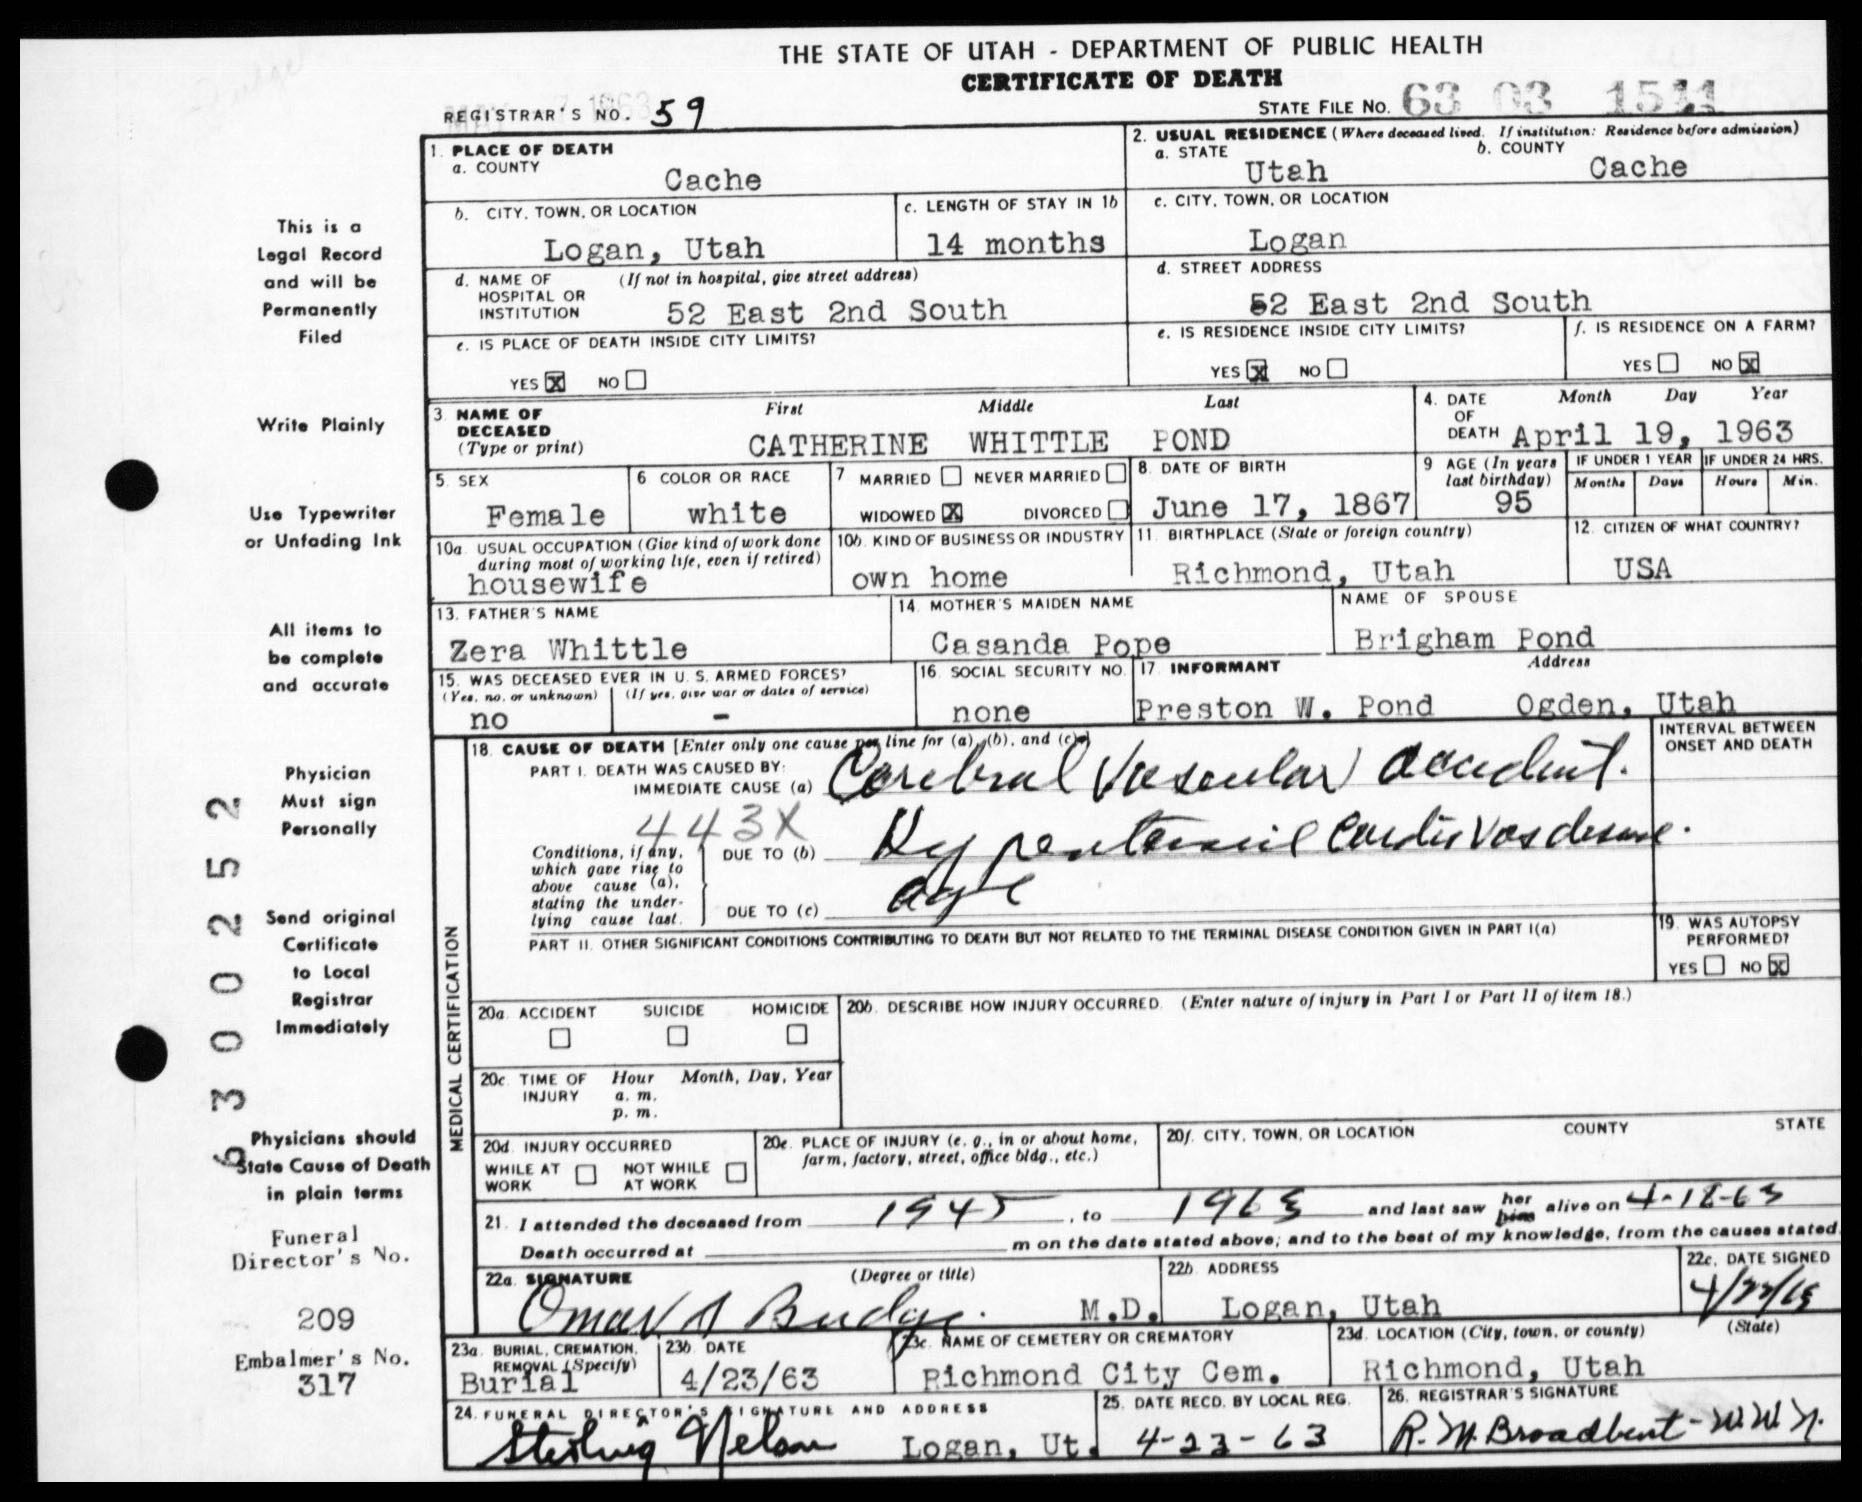 THE STATE OF UTAH - DEPARTMENT OF PUBLIC HEALTH
CERTIFICATE OF DEATH
REGISTRAR'S NO. 59
STATE FILE NO. 63 03
1. PLACE OF DEATH
a. COUNTY
Cache
2. USUAL RESIDENCE (Where deceased lived. If institution: Residence before admission)
a. STATE
Utah
b. COUNTY
Cache
b. CITY, TOWN, OR LOCATION
Logan, Utah
c. LENGTH OF STAY IN 1b
14 months
c. CITY, TOWN, OR LOCATION
Logan
d. NAME OF HOSPITAL OR INSTITUTION (If not in hospital, give street address)
52 East 2nd South
d. STREET ADDRESS
52 East 2nd South
e. IS PLACE OF DEATH INSIDE CITY LIMITS?
YES X NO
e. IS RESIDENCE INSIDE CITY LIMITS?
YES X NO
f. IS RESIDENCE ON A FARM?
YES NO X
3. NAME OF DECEASED (Type or print)
First Middle Last
CATHERINE WHITTLE POND
4. DATE OF DEATH
Month Day Year
April 19, 1963
5. SEX
Female
6 COLOR OR RACE
white
7 MARRIED NEVER MARRIED
WIDOWED X DIVORCED
8. DATE OF BIRTH
June 17, 1867
9 AGE (In years last birthday)
95
IF UNDER 1 YEAR
Months Days
IF UNDER 24 HRS.
Hours Min.
10a. USUAL OCCUPATION (Give kind of work done during most of working life, even if retired)
housewife
10b. KIND OF BUSINESS OR INDUSTRY
own home
11. BIRTHPLACE (State or foreign country)
Richmond, Utah
12. CITIZEN OF WHAT COUNTRY?
USA
13. FATHER'S NAME
Zera Whittle
14. MOTHER'S MAIDEN NAME
Casanda Pope
NAME OF SPOUSE
Brigham Pond
15. WAS DECEASED EVER IN U.S. ARMED FORCES?
(Yes, no, or unknown) (If yes, give war or dates of service)
no -
16. SOCIAL SECURITY NO.
none
17. INFORMANT Address
Preston W. Pond Ogden, Utah
MEDICAL CERTIFICATION
18. CAUSE OF DEATH [Enter only one cause per line for (a), (b), and (c)]
PART I. DEATH WAS CAUSED BY:
IMMEDIATE CAUSE (a) Cerebral Vascular Accident.
INTERVAL BETWEEN ONSET AND DEATH
443X
Conditions, if any, which gave rise to above cause (a), stating the underlying cause last.
DUE TO (b) Hypertensive Cardio Vas disease.
DUE TO (c) age
PART II. OTHER SIGNIFICANT CONDITIONS CONTRIBUTING TO DEATH BUT NOT RELATED TO THE TERMINAL DISEASE CONDITION GIVEN IN PART I(a)
19. WAS AUTOPSY PERFORMED?
YES NO X
20a. ACCIDENT SUICIDE HOMICIDE
20b. DESCRIBE HOW INJURY OCCURRED. (Enter nature of injury in Part I or Part II of item 18.)
20c. TIME OF INJURY Hour Month, Day, Year
a. m.
p. m.
20d. INJURY OCCURRED
WHILE AT WORK NOT WHILE AT WORK
20e. PLACE OF INJURY (e. g., in or about home, farm, factory, street, office bldg., etc.)
20f. CITY, TOWN, OR LOCATION COUNTY STATE
21. I attended the deceased from 1945, to 1963 and last saw her him alive on 4-18-63
Death occurred at m on the date stated above; and to the best of my knowledge, from the causes stated.
22a. SIGNATURE (Degree or title)
Omar S Budge. M.D.
22b. ADDRESS
Logan, Utah
22c. DATE SIGNED
4/22/63
23a. BURIAL, CREMATION, REMOVAL (Specify)
Burial
23b. DATE
4/23/63
23c. NAME OF CEMETERY OR CREMATORY
Richmond City Cem.
23d. LOCATION (City, town, or county) (State)
Richmond, Utah
24. FUNERAL DIRECTOR'S SIGNATURE AND ADDRESS
Sterling Nelson Logan, Ut.
25. DATE RECD. BY LOCAL REG.
4-23-63
26. REGISTRAR'S SIGNATURE
R. M. Broadbent - W W N.
This is a
Legal Record
and will be
Permanently
Filed
Write Plainly
Use Typewriter
or Unfading Ink
All items to
be complete
and accurate
Physician
Must sign
Personally
Send original
Certificate
to Local
Registrar
Immediately
Physicians should
State Cause of Death
in plain terms
Funeral
Director's No.
209
Embalmer's No.
317
63002252